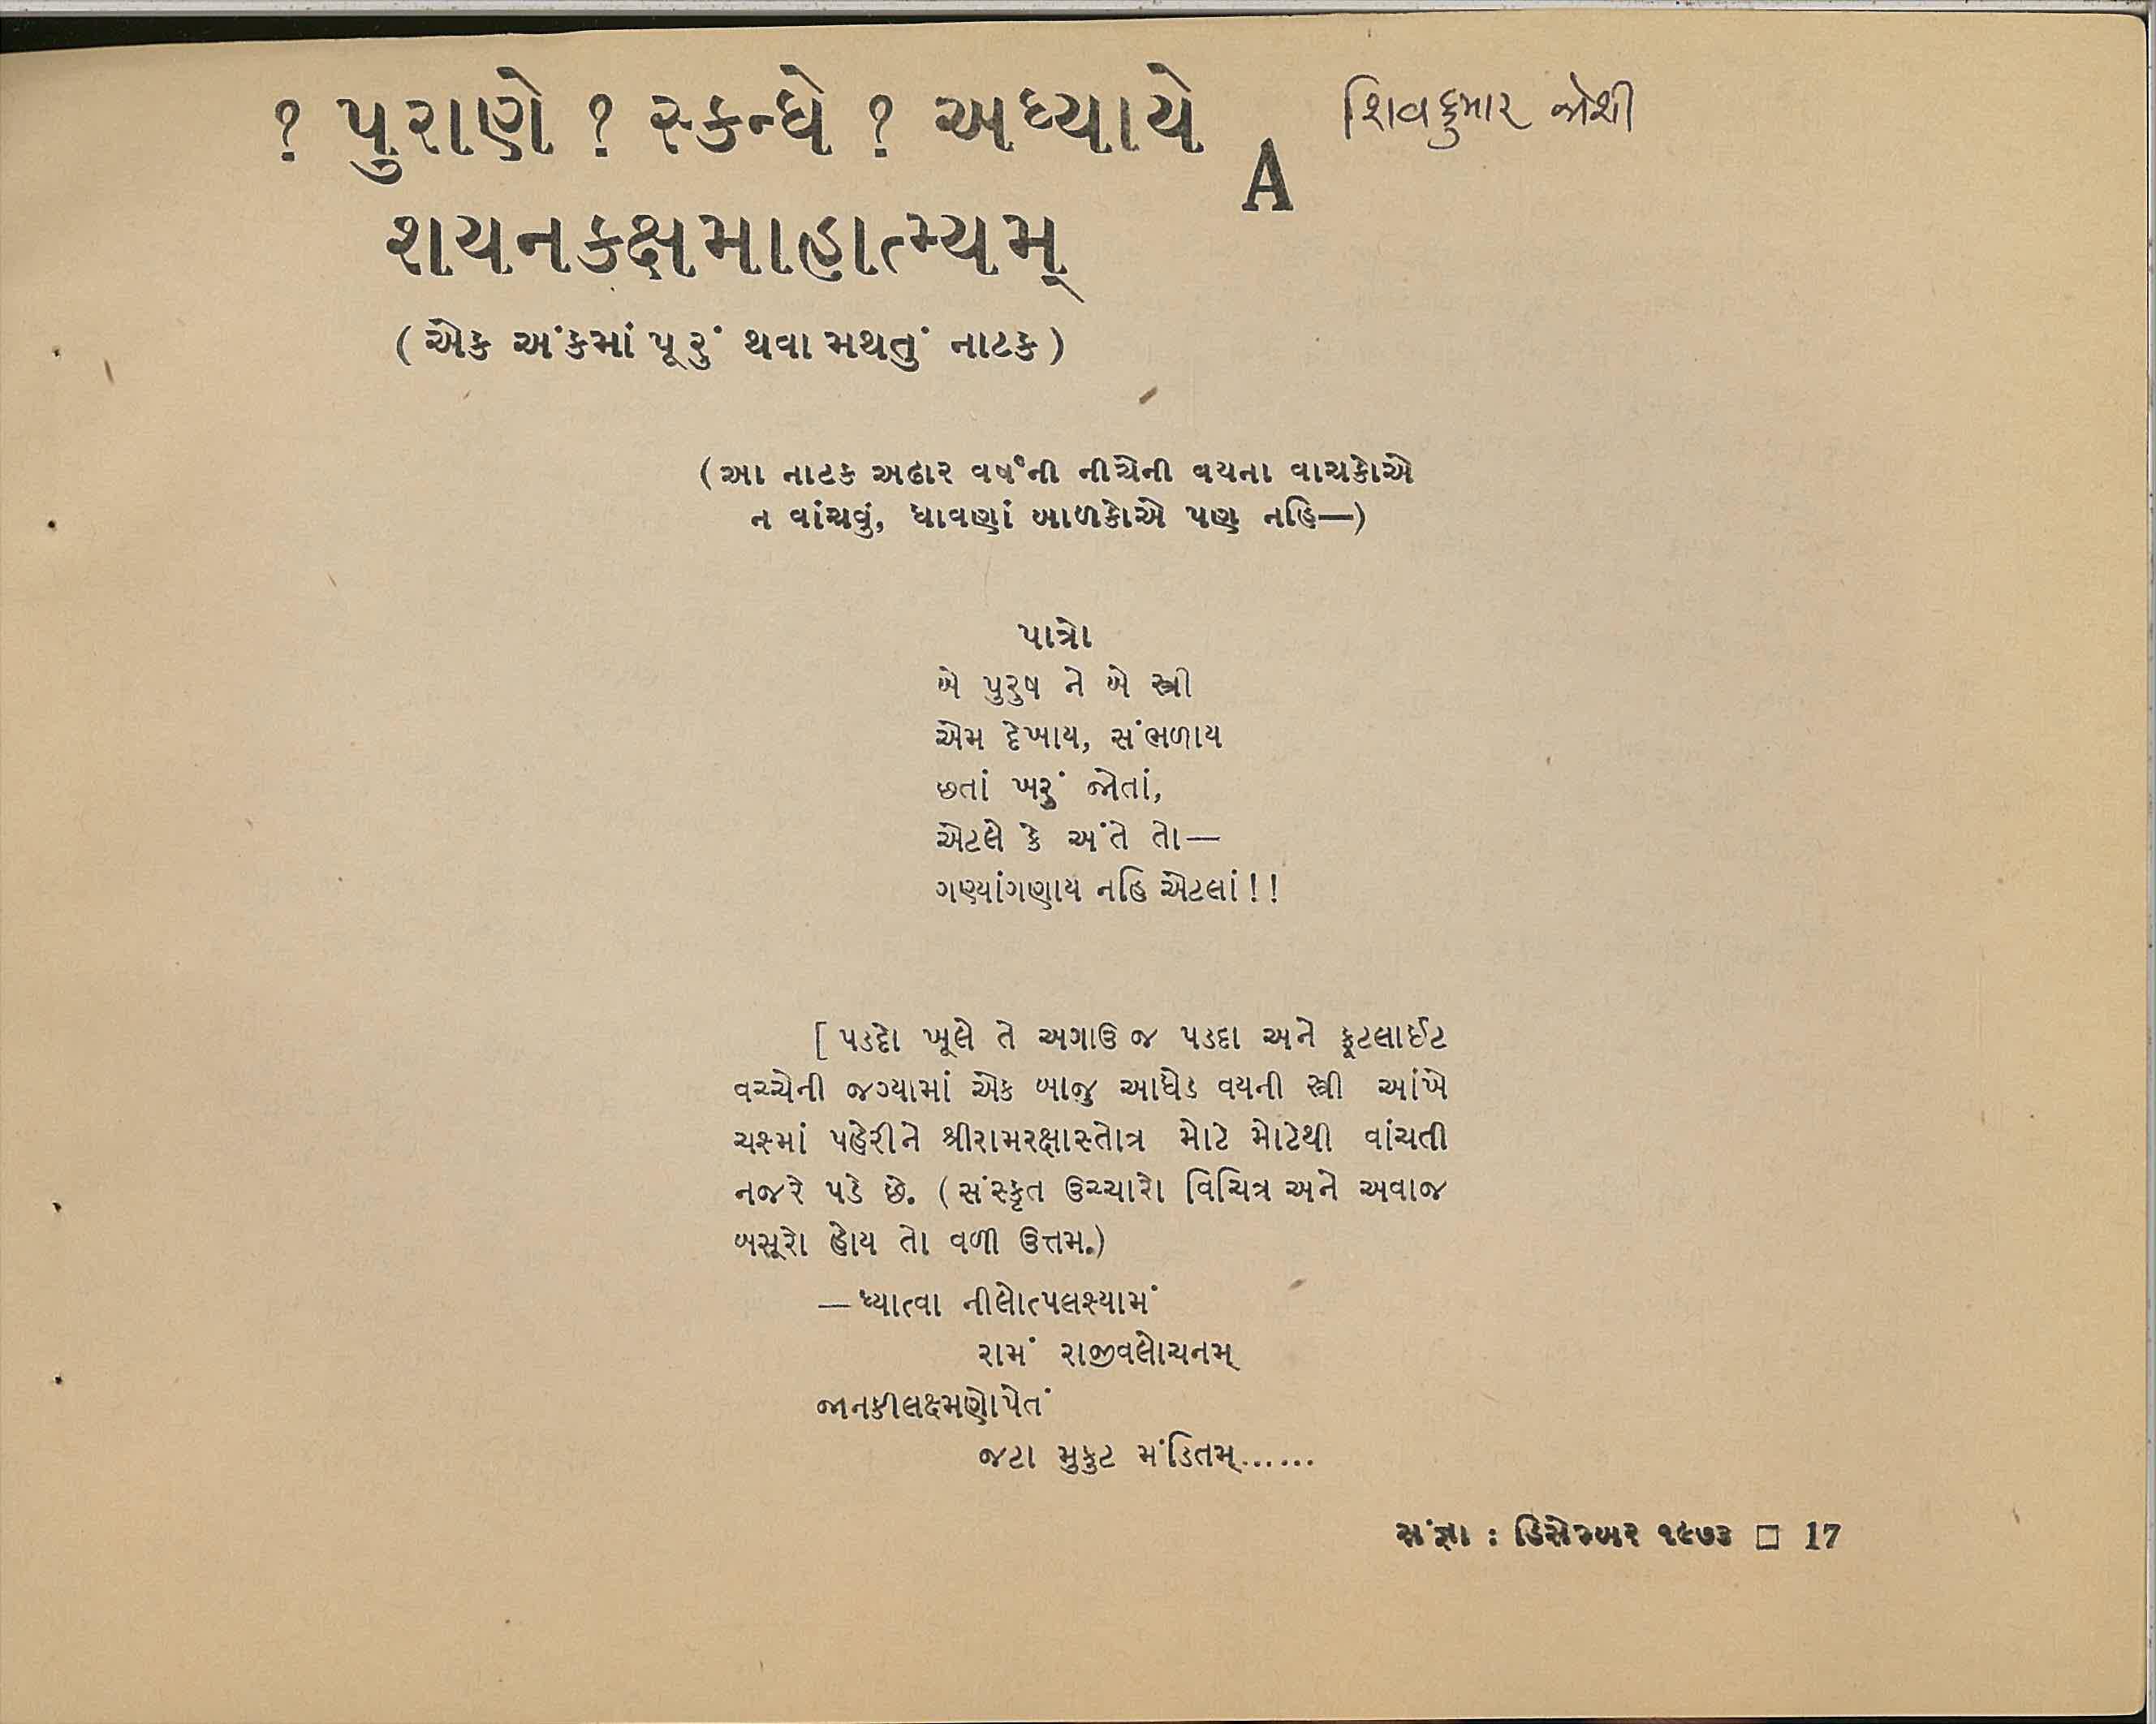 ? પુરાણે ? સ્કન્ધે ? અધ્યાયે
A
શિવકુમાર જોશી
શયનકક્ષમાહાત્મ્યમ્
(એક અંકમાં પૂરું થવા મથતું નાટક)
(આ નાટક અઢાર વર્ષની નીચેની વયના વાચકોએ
ન વાંચવું, ધાવણાં બાળકોએ પણ નહિ—)
પાત્રો
બે પુરુષ ને બે સ્ત્રી
એમ દેખાય, સંભળાય
છતાં ખરું જોતાં,
એટલે કે અંતે તો—
ગણ્યાંગણાય નહિ એટલાં!!
[ પડદો ખૂલે તે અગાઉ જ પડદા અને ફૂટલાઈટ
વચ્ચેની જગ્યામાં એક બાજુ આધેડ વયની સ્ત્રી આંખે
ચશ્માં પહેરીને શ્રીરામરક્ષાસ્તોત્ર મોટે મોટેથી વાંચતી
નજરે પડે છે. (સંસ્કૃત ઉચ્ચારો વિચિત્ર અને અવાજ
બસૂરો હોય તો વળી ઉત્તમ.)
—ધ્યાત્વા નીલોત્પલશ્યામં
રામં રાજીવલોચનમ્
જાનકીલક્ષ્મણોપેતં
જટા મુકુટ મંડિતમ્......
સંજ્ઞા : ડિસેમ્બર ૧૯૭૩ □ 17